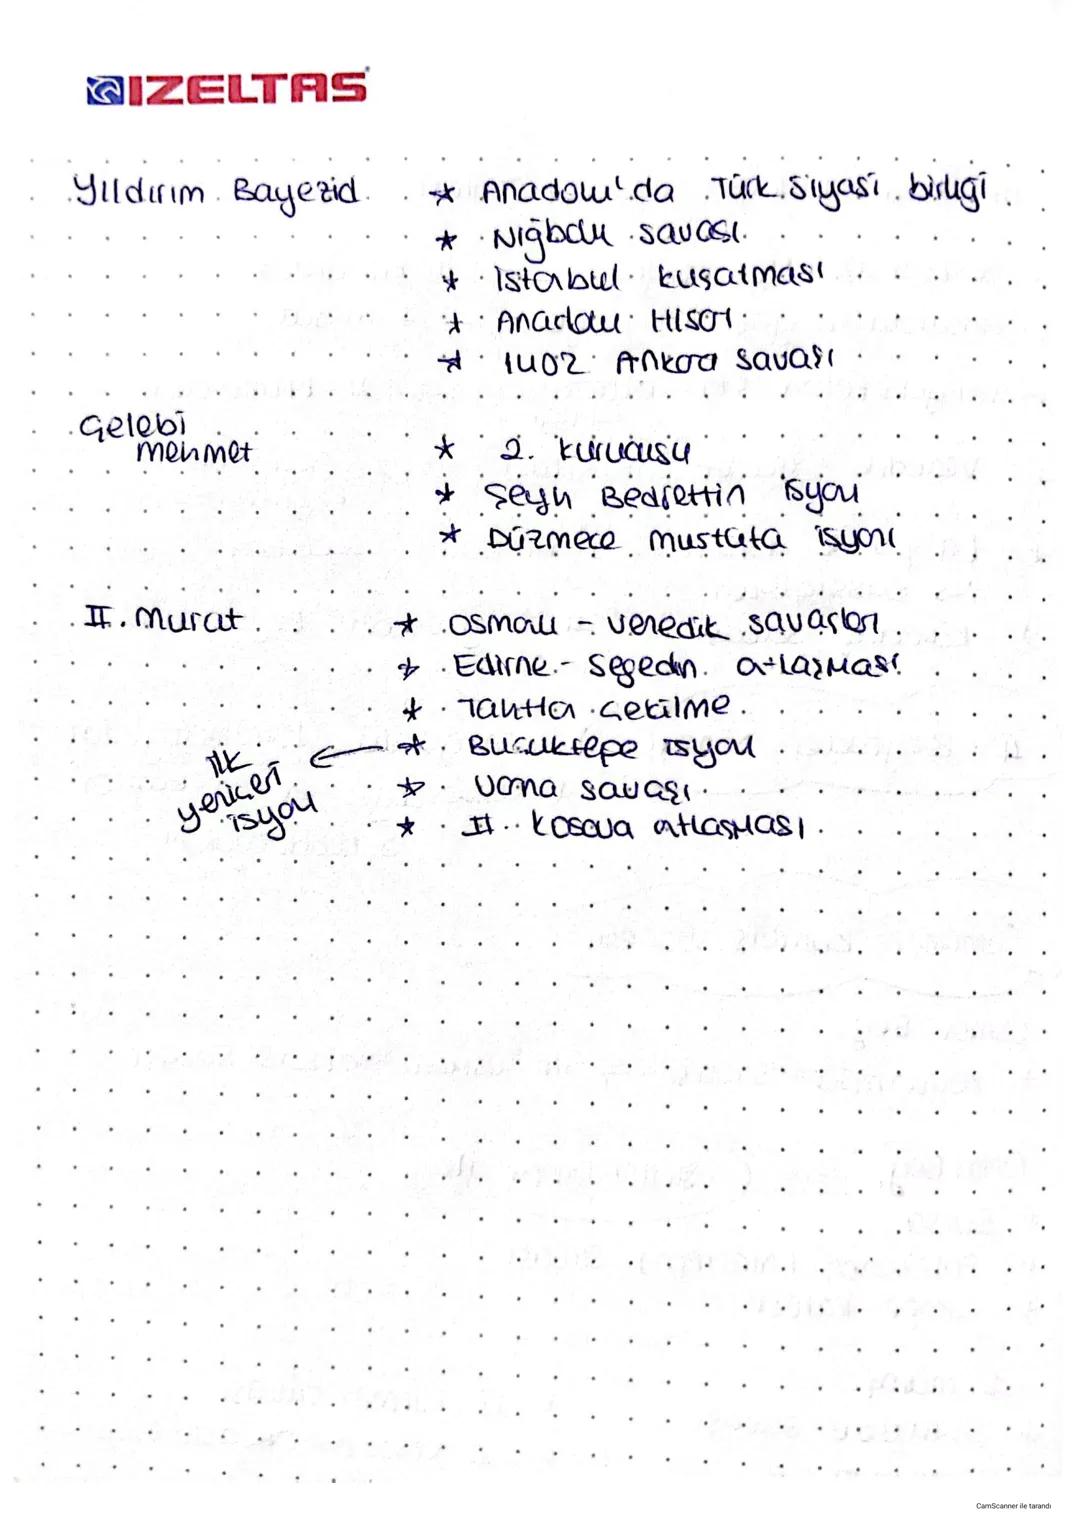 IZELTAS
Yıldırım Bayezid * Anadolu'da Türk siyasi birliği
* Niğbolu savası
* istanbul kuşatması
* Anadolu Hisarı
* 1402 Ankara savaşı
Çelebi
mehmet
* 2. kurucusu
* Şeyh Bedrettin isyanı
* Düzmece mustafa isyanı
II. Murat * Osmanlı - venedik savaşları
* Edirne - Segedin antlaşması
* Tahttan çekilme
* Buçuktepe isyanı
ilk
yeniçeri
isyanı
* Varna savaşı
* II. kosova antlaşması
CamScanner ile tarandı